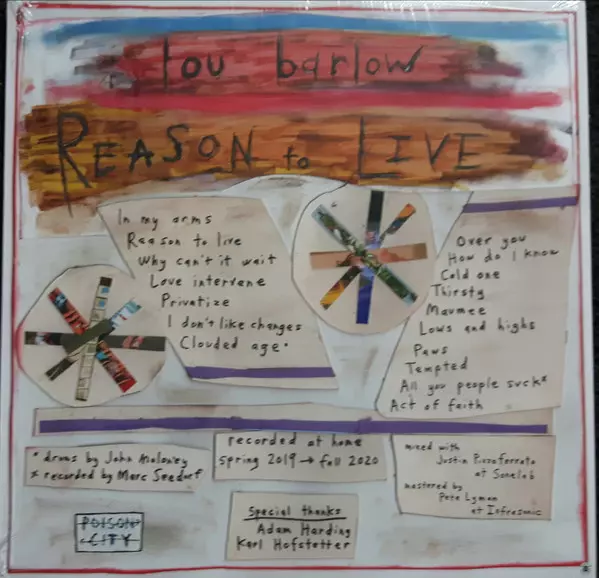 lou barlow
REASON to LIVE
In my arms
Reason to live
Why can't it wait
Love intervene
Privatize
I don't like changes
Clouded age*
Over you
How do I know
Cold one
Thirsty
Maumee
Lows and highs
Paws
Tempted
All you people suck*
Act of faith
* drums by John Moloney
x recorded by Marc Seedorf
recorded at home
spring 2019 → fall 2020
mixed with
Justin Pizzoferrato
at Sonelab
mastered by
Pete Lyman
at Infrasonic
Special thanks
Adam Harding
Karl Hofstetter
POISON
CITY